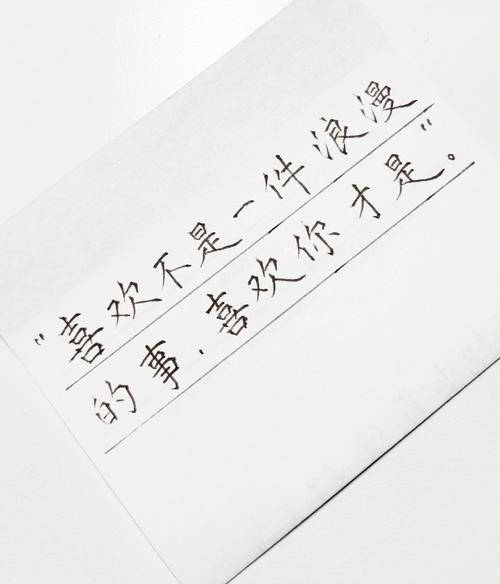 "喜欢不是一件浪漫
的事.喜欢你才是"。